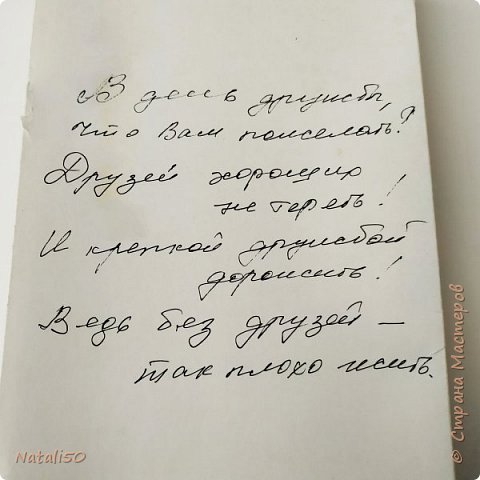 В день дружбы,
что Вам пожелать?
Друзей хороших
не терять!
И крепкой дружбой
дорожить!
Ведь без друзей —
так плохо жить.
Natali50
© Страна Мастеров